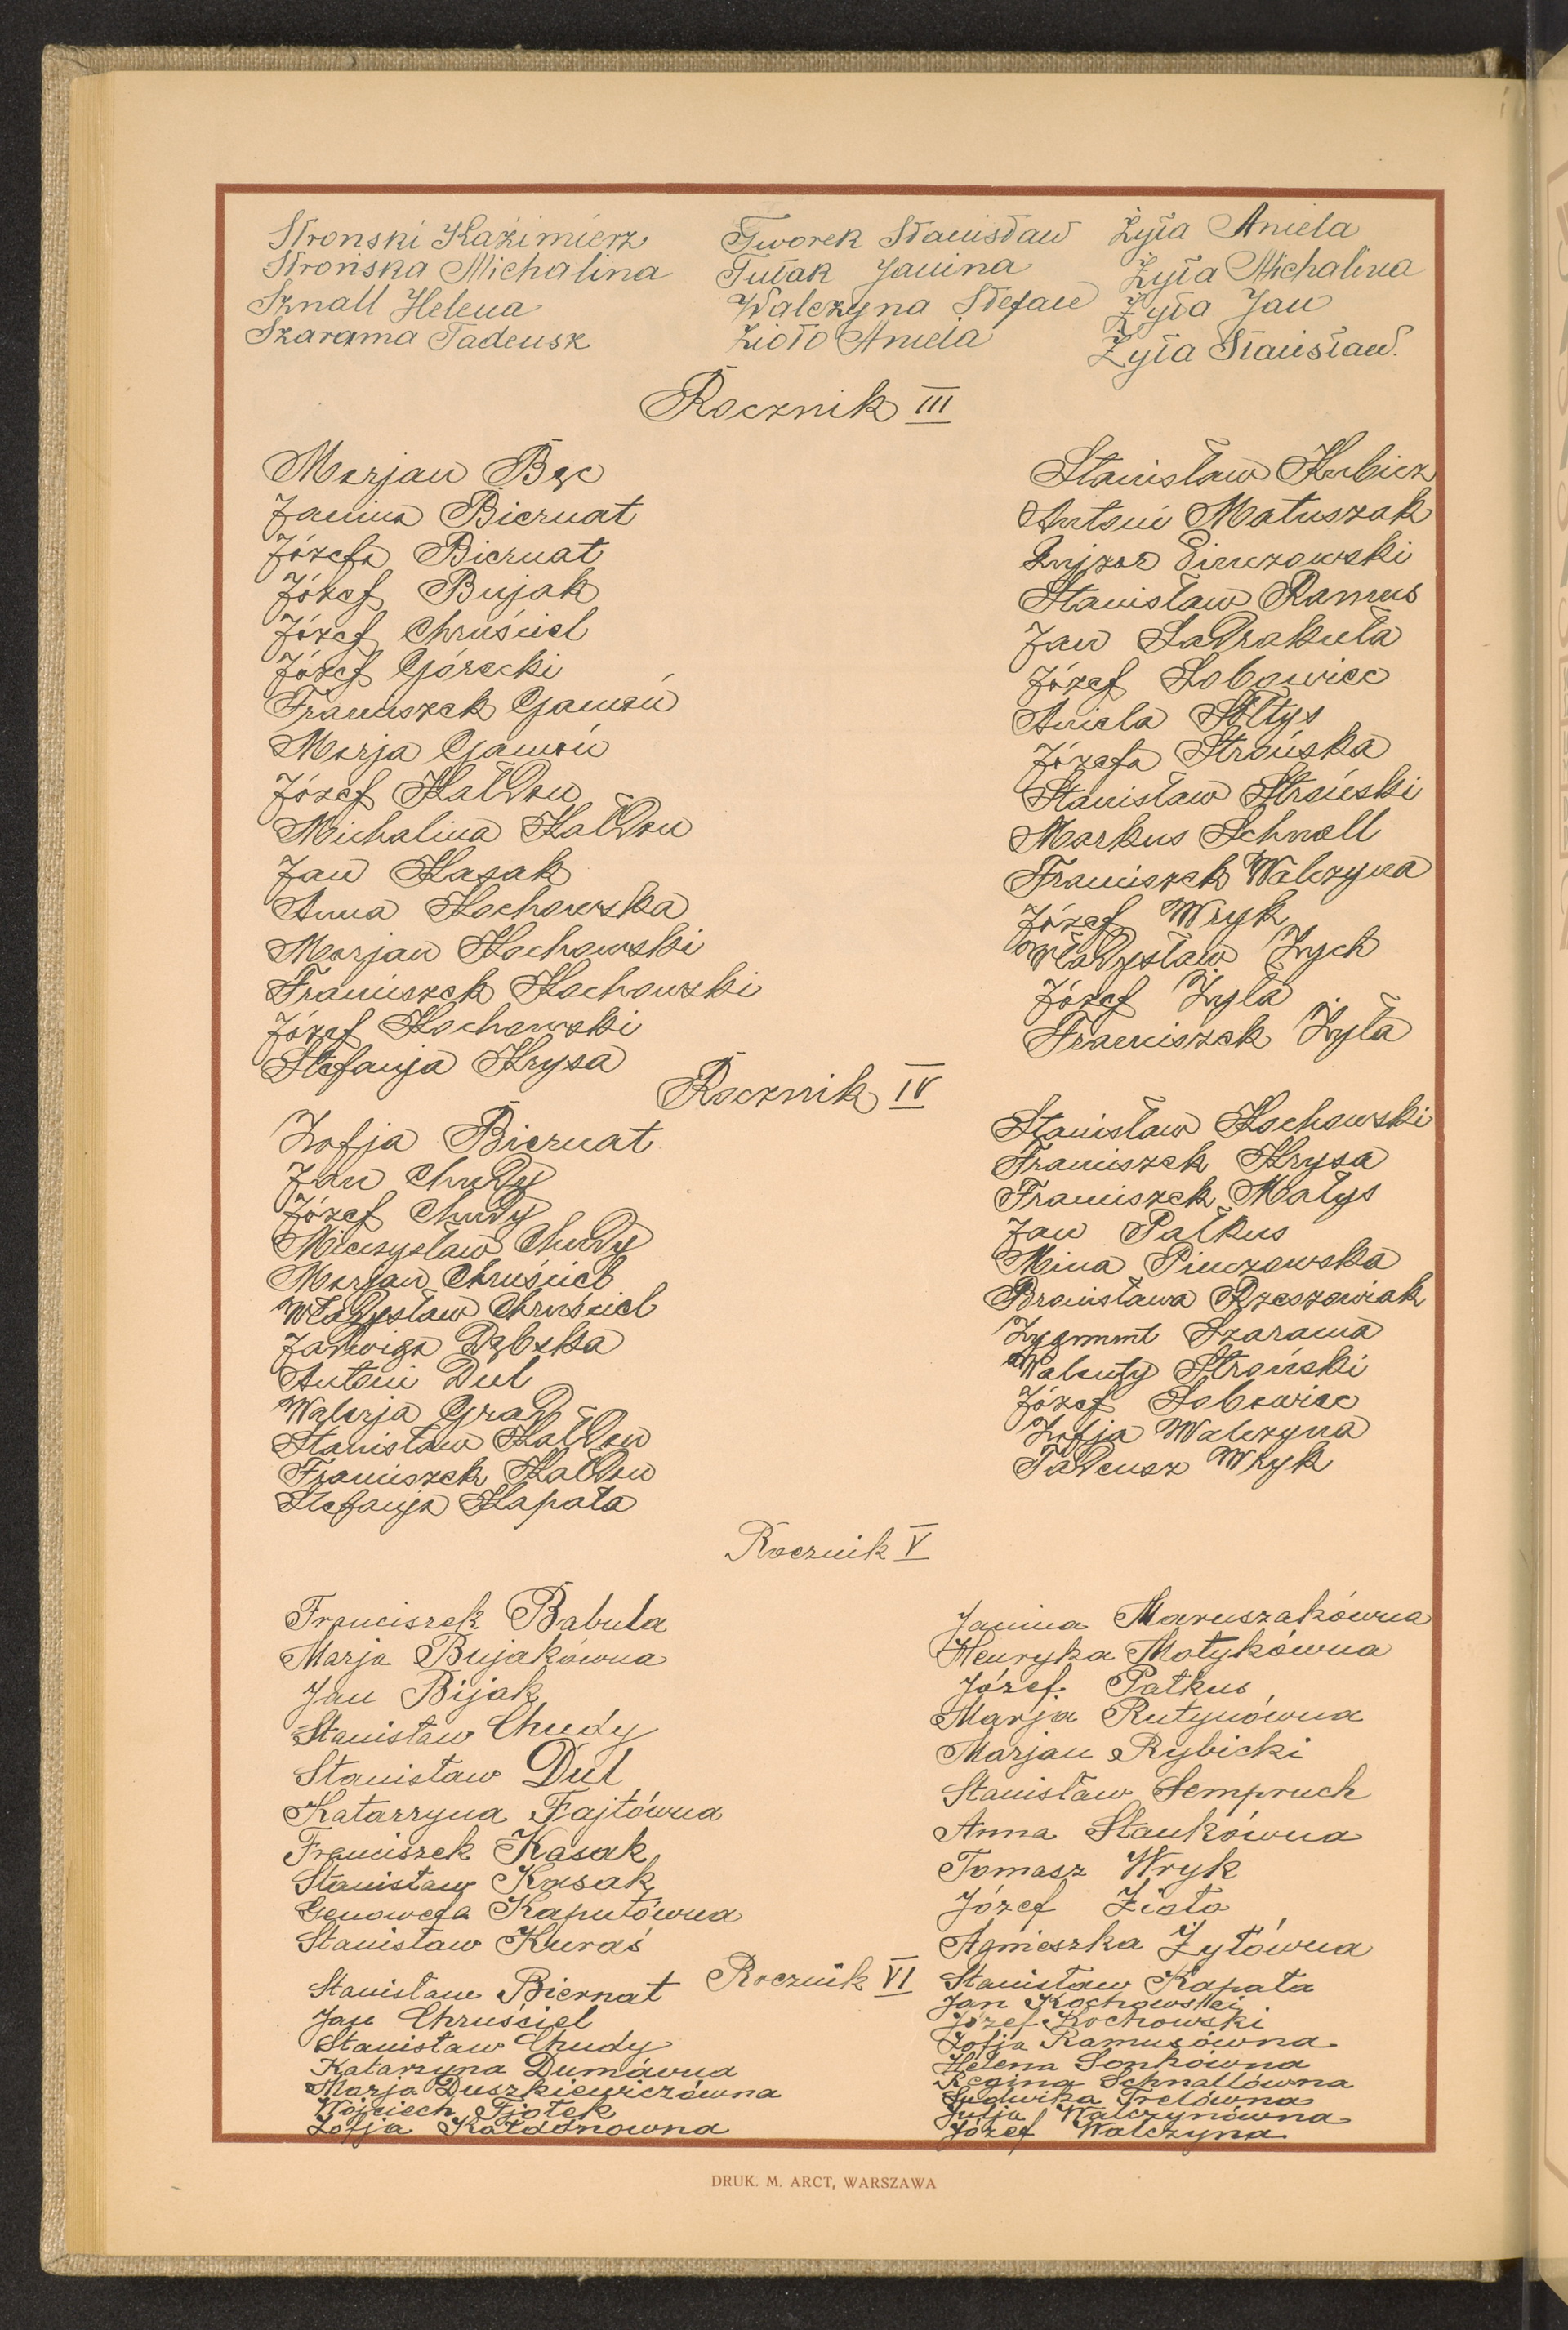 Stronski Kazimierz
Strońska Michalina
Sznall Helena
Szarama Tadeusz
Tworek Stanisław
Tułak Janina
Walczyna Stefan
Zioło Aniela
Żyła Aniela
Żyła Michalina
Żyła Jan
Żyła Stanisław.
Rocznik III
Marjan Bąc
Janina Biernat
Józefa Biernat
Józef Bujak
Józef Chruściel
Józef Górecki
Franciszek Gawroń
Marja Gawroń
Józef Kałdon
Michalina Kałdon
Jan Kasak
Anna Kochowska
Marjan Kochowski
Franciszek Kochowski
Józef Kochowski
Stefanja Krysa
Stanisław Kubicz
Antoni Matuszak
Pinczowski
Stanisław Ramus
Jan Sadrakuła
Józef Sobowiec
Aniela Sołtys
Józefa Strońska
Stanisław Stroński
Markus Schnall
Franciszek Walczyna
Józef Wryk
Władysław Zych
Józef Żyła
Franciszek Żyła
Rocznik IV
Zofja Biernat
Jan Chudy
Józef Chudy
Mieczysław Chudy
Marjan Chruściel
Władysław Chruściel
Jadwiga Dębska
Antoni Dul
Walerja Grad
Stanisław Kałdon
Franciszek Kałdon
Stefanja Kapała
Stanisław Kochowski
Franciszek Krysa
Franciszek Małys
Jan Pałkus
Mina Pinczowska
Bronisława Rzeszowiak
Zygmunt Szarama
Walenty Stroński
Józef Sobowiec
Zofja Walczyna
Tadeusz Wryk
Rocznik V
Franciszek Babula
Marja Bujakówna
Jan Bijak
Stanisław Chudy
Stanisław Dul
Katarzyna Fajtówna
Franciszek Kasak
Stanisław Kasak
Genowefa Kaputówna
Stanisław Kuraś
Janina Maruszakówna
Henryka Motykówna
Józef Pałkus
Marja Rutynówna
Marjan Rybicki
Stanisław Sempruch
Anna Stankówna
Tomasz Wryk
Józef Zioło
Agnieszka Żyłówna
Rocznik VI
Stanisław Biernat
Jan Chruściel
Stanisław Chudy
Katarzyna Dumówna
Marja Duszkiewiczówna
Wojciech Fjołek
Zofja Kałdonowna
Stanisław Kapała
Jan Kochowski
Józef Kochowski
Zofja Ramusówna
Helena Sonkówna
Regina Schnallówna
Ludwika Trelówna
Julja Walczynówna
Józef Walczyna
DRUK. M. ARCT, WARSZAWA